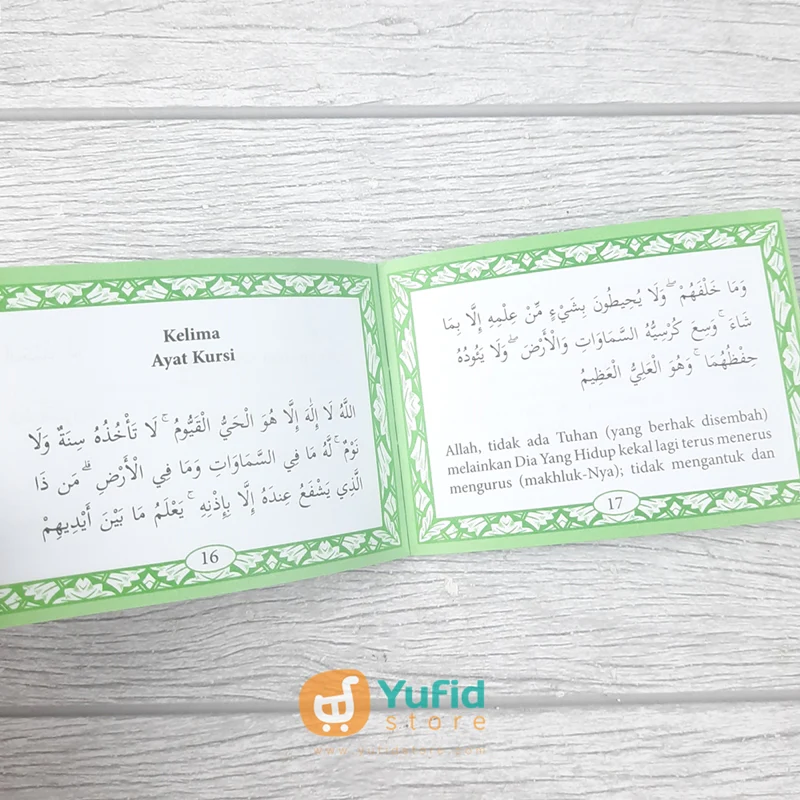 Kelima
Ayat Kursi
اللَّهُ لَا إِلَٰهَ إِلَّا هُوَ الْحَيُّ الْقَيُّومُ ۚ لَا تَأْخُذُهُ سِنَةٌ وَلَا
نَوْمٌ ۚ لَّهُ مَا فِي السَّمَاوَاتِ وَمَا فِي الْأَرْضِ ۗ مَن ذَا
الَّذِي يَشْفَعُ عِندَهُ إِلَّا بِإِذْنِهِ ۚ يَعْلَمُ مَا بَيْنَ أَيْدِيهِمْ
16
وَمَا خَلْفَهُمْ ۖ وَلَا يُحِيطُونَ بِشَيْءٍ مِّنْ عِلْمِهِ إِلَّا بِمَا
شَاءَ ۚ وَسِعَ كُرْسِيُّهُ السَّمَاوَاتِ وَالْأَرْضَ ۖ وَلَا يَئُودُهُ
حِفْظُهُمَا ۚ وَهُوَ الْعَلِيُّ الْعَظِيمُ
Allah, tidak ada Tuhan (yang berhak disembah)
melainkan Dia Yang Hidup kekal lagi terus menerus
mengurus (makhluk-Nya); tidak mengantuk dan
17
Yufid
store